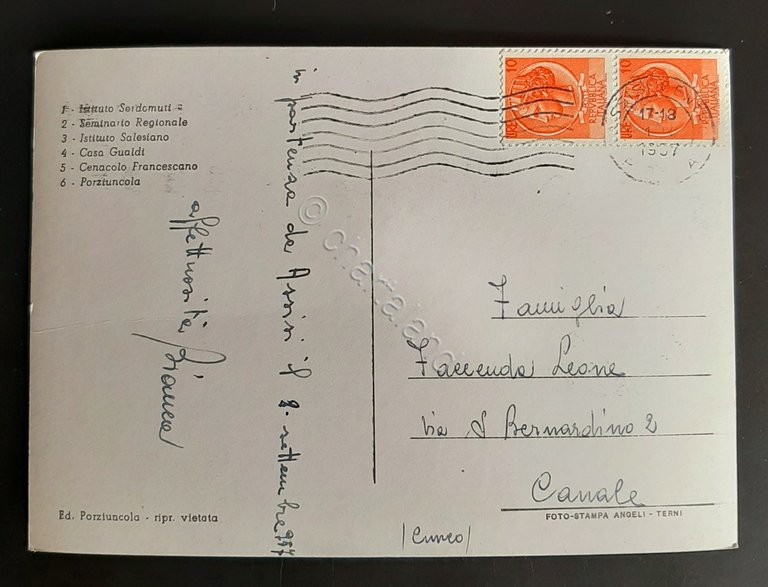 1 - Istituto Serdomuti
2 - Seminario Regionale
3 - Istituto Salesiano
4 - Casa Gualdi
5 - Cenacolo Francescano
6 - Porziuncola
in partenza da Assisi il 2. settembre 957
affettuosità Bianca
10
10
REPVBBLICA
ITALIANA
17-18
1957
Famiglia
Faccenda Leone
Via S Bernardino 2
Canale
(Cuneo)
Ed. Porziuncola - ripr. vietata
FOTO-STAMPA ANGELI - TERNI